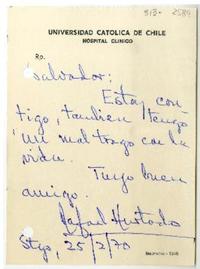 313- 2589
UNIVERSIDAD CATOLICA DE CHILE
HOSPITAL CLINICO
RP.
Salvador:
Estoy con
tigo, tambien tengo
un mal trago con la
vida.
Tu gran buen
amigo.
Rafael Hurtado
Stgo, 25/2/70